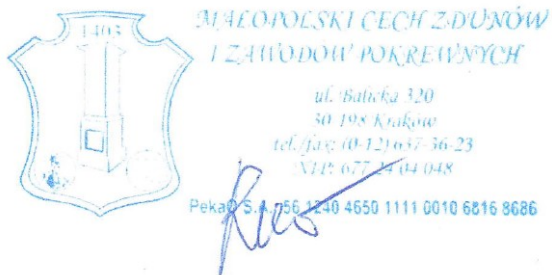 1403
MAŁOPOLSKI CECH ZDUNÓW
I ZAWODÓW POKREWNYCH
ul. Balicka 320
30-198 Kraków
tel./fax: (0-12) 637-36-23
NIP: 677 24 04 048
PekaO S.A. 56 1240 4650 1111 0010 6816 8686